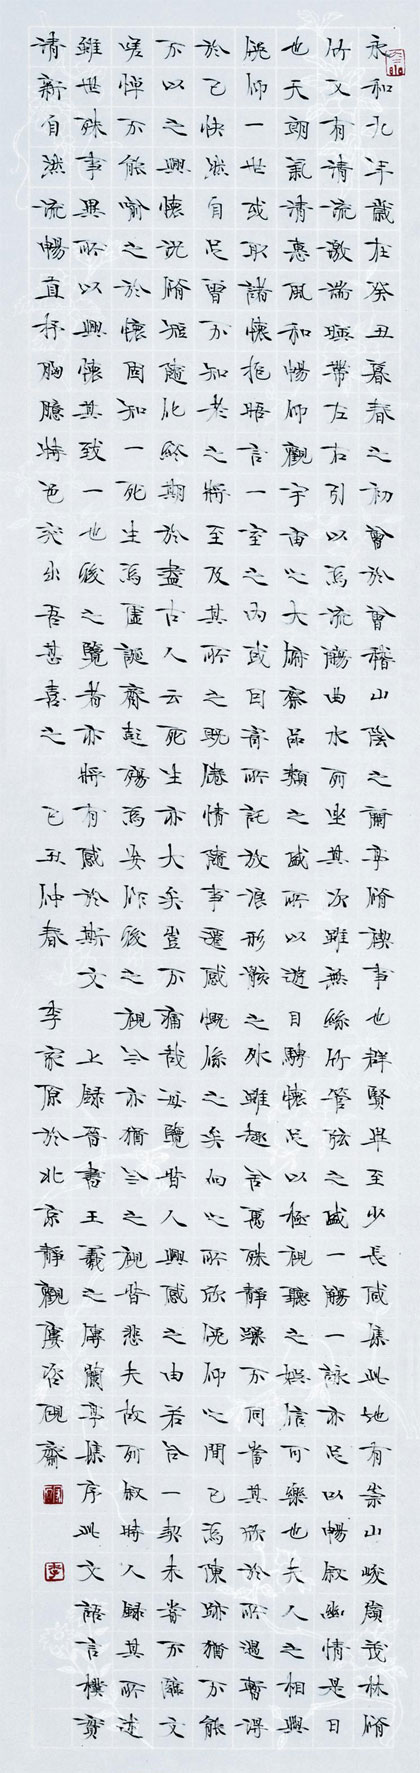 永和九年歲在癸丑暮春之初會於會稽山陰之蘭亭脩禊事也群賢畢至少長咸集此地有崇山峻嶺茂林脩
竹又有清流激湍映帶左右引以爲流觴曲水列坐其次雖無絲竹管弦之盛一觴一詠亦足以暢叙幽情是日
也天朗氣清惠風和暢仰觀宇宙之大俯察品類之盛所以遊目騁懷足以極視聽之娱信可樂也夫人之相與
俛仰一世或取諸懷抱晤言一室之内或因寄所託放浪形骸之外雖趣舍萬殊静躁不同當其欣於所遇暫得
於己快然自足曾不知老之將至及其所之既倦情隨事遷感慨係之矣向之所欣俛仰之間已爲陳跡猶不能
不以之興懷況脩短隨化終期於盡古人云死生亦大矣豈不痛哉每覽昔人興感之由若合一契未嘗不臨文
嗟悼不能喻之於懷固知一死生爲虛誕齊彭殤爲妄作後之視今亦猶今之視昔悲夫故列叙時人録其所述
雖世殊事異所以興懷其致一也後之覽者亦將有感於斯文 上録晉書王羲之傳蘭亭集序此文語言樸實
清新自然流暢直抒胸臆特色突出吾甚喜之 己丑仲春 李家原於北京靜觀廔容硯齋
李